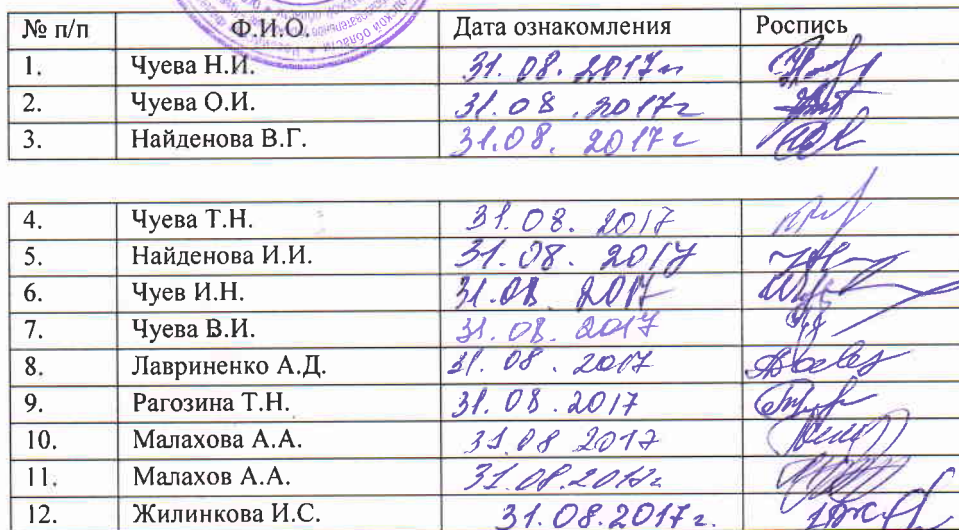 № п/п Ф.И.О. Дата ознакомления Роспись
1. Чуева Н.И. 31.08.2017г
2. Чуева О.И. 31.08.2017г
3. Найденова В.Г. 31.08.2017г
4. Чуева Т.Н. 31.08.2017
5. Найденова И.И. 31.08.2017
6. Чуев И.Н. 31.08 2017
7. Чуева В.И. 31.08.2017
8. Лавриненко А.Д. 31.08.2017
9. Рагозина Т.Н. 31.08.2017
10. Малахова А.А. 31.08 2017
11. Малахов А.А. 31.08.2017г
12. Жилинкова И.С. 31.08.2017г.